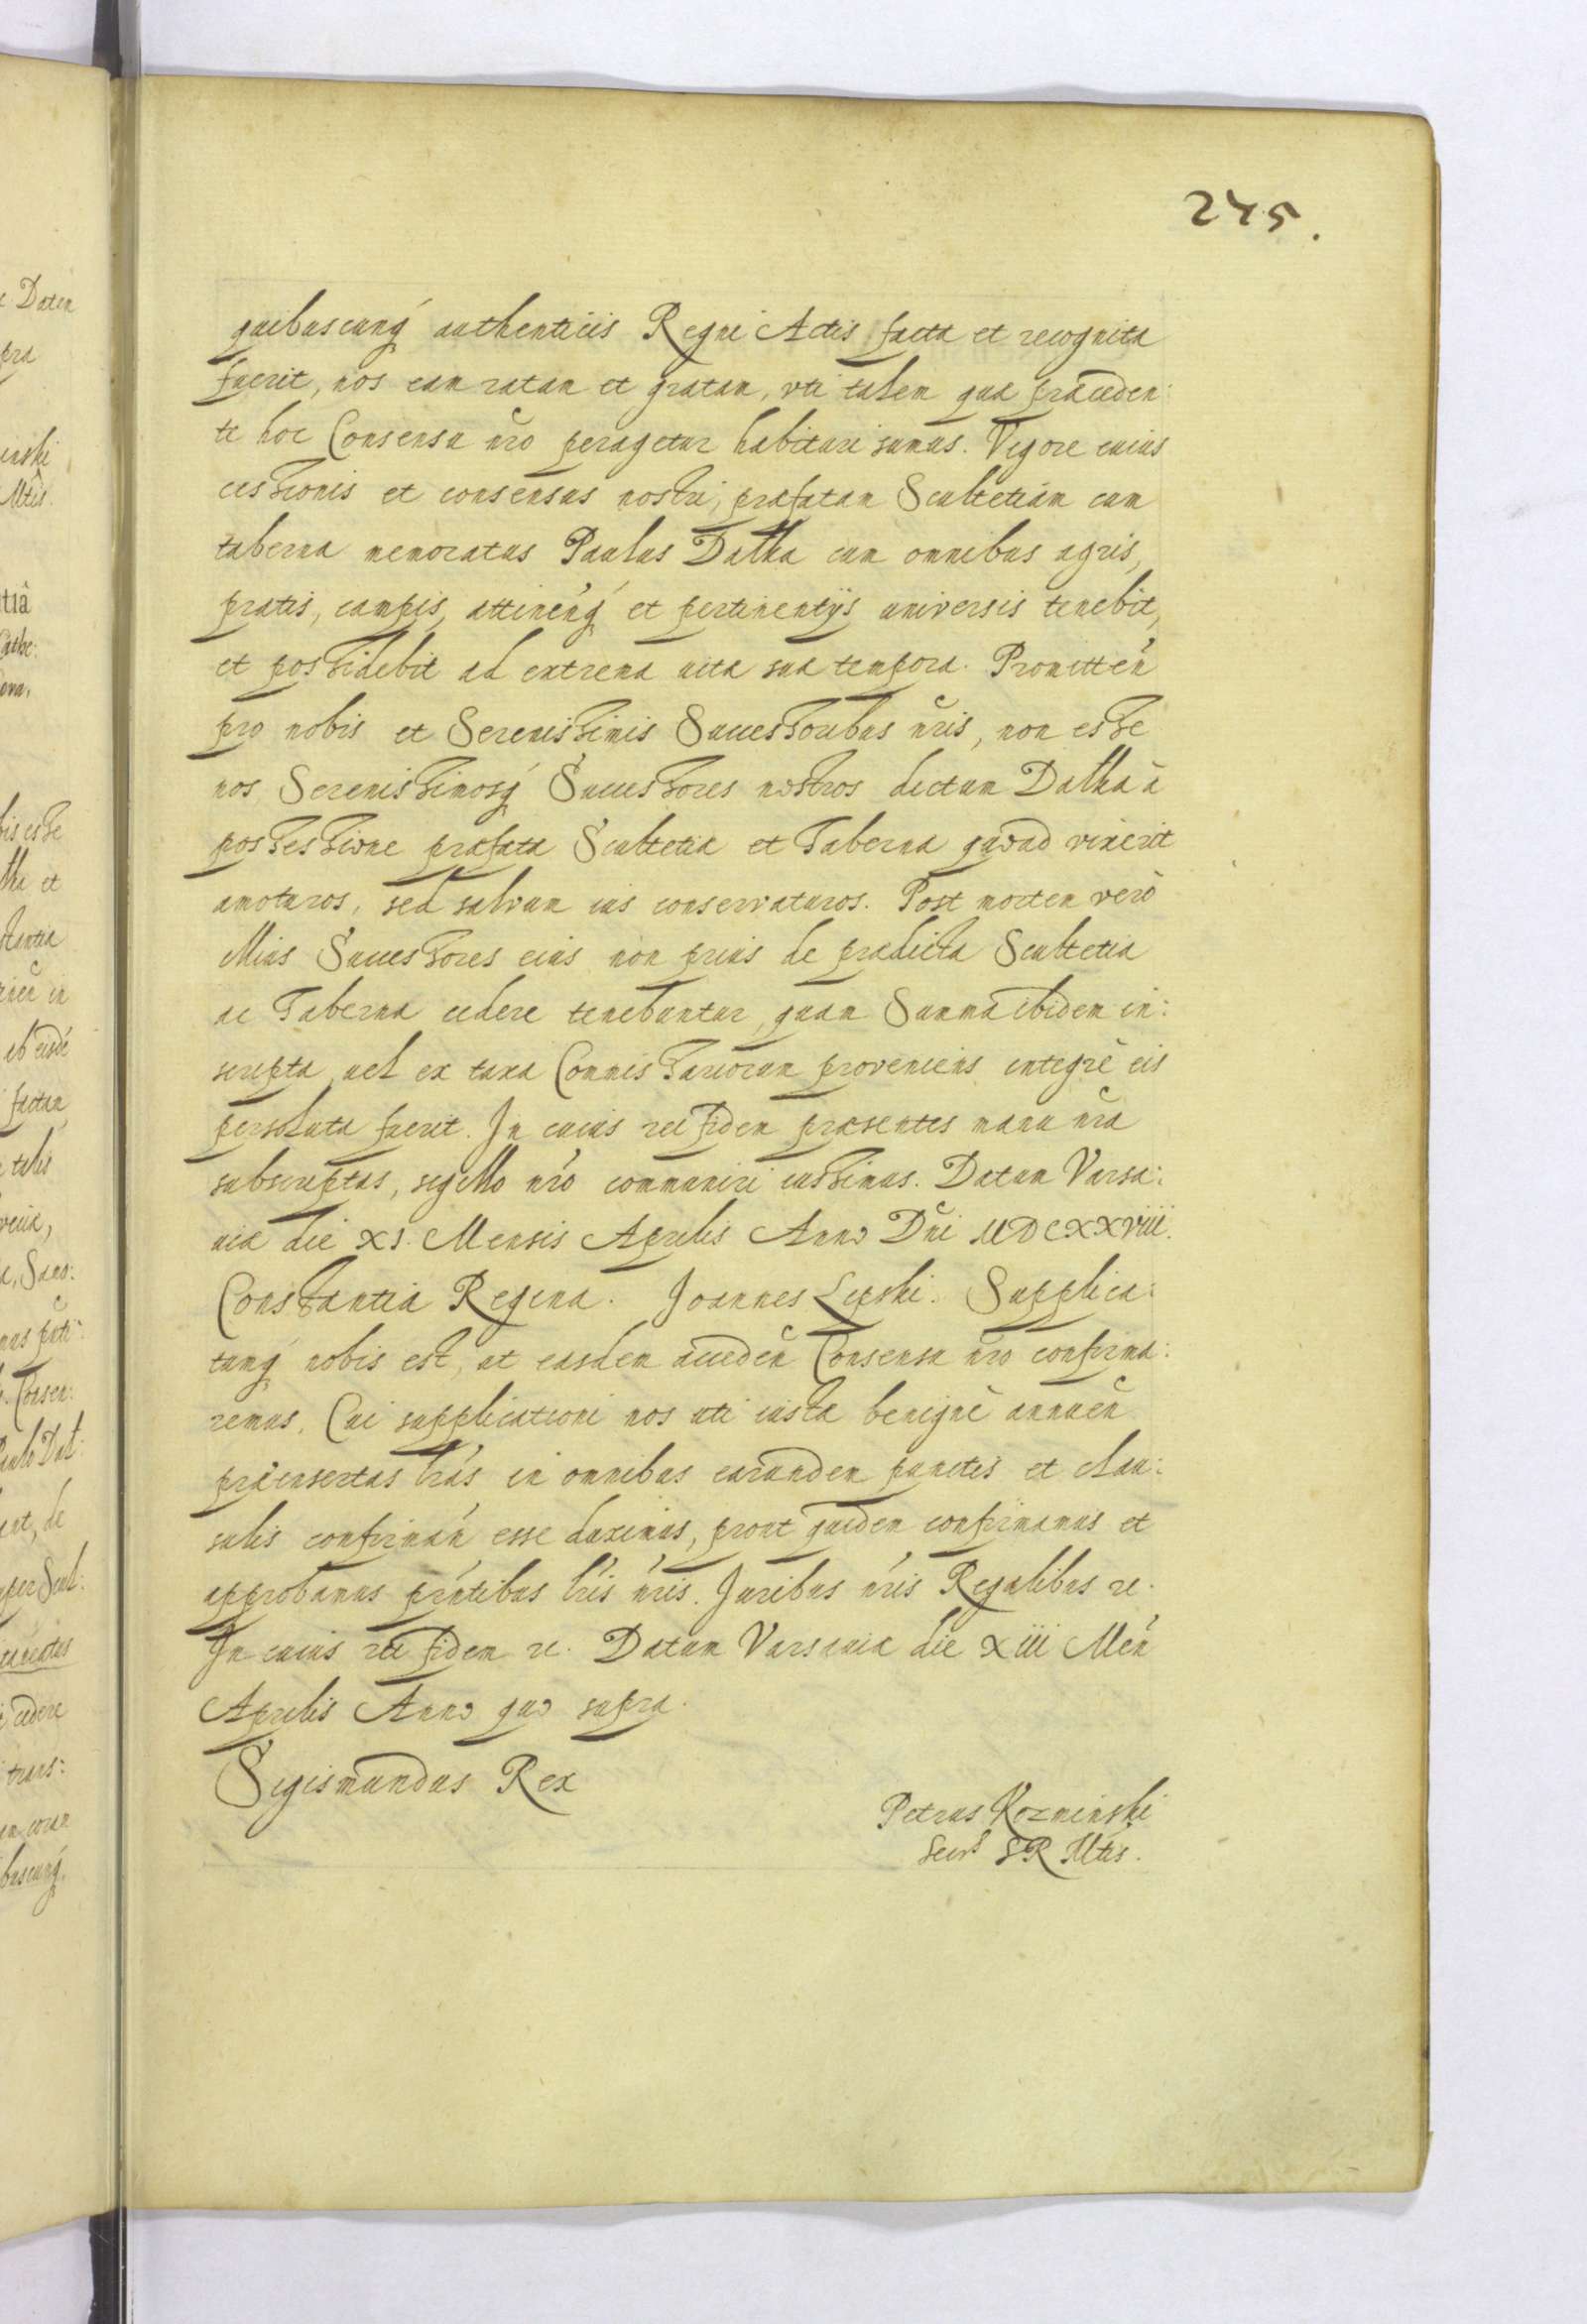 245.
quibuscunq́ authenticis Regni Actis facta et recognita
fuerit, nos eam ratam et gratam, vti talem qua præceden:
te hoc Consensu nr̃o peragetur habituri sumus. Vigore cuius
cessionis et consensus nostri, præfatam Scultetiam cum
taberna memoratus Paulus Datka cum omnibus agris,
pratis, campis, attineñq́ et pertinentijs universis tenebit,
et possidebit ad extrema uitæ suæ tempora. Promitteñ
pro nobis et Serenissimis Successoribus nr̃is, non esse
nos Serenissimosq́ Successores nostros dictum Datka à
possessione præfatæ Scultetiæ et Tabernæ quoad vixerit
amoturos, sed saluum ius conservaturos. Post mortem verò
illius Successores eius non prius de prædicta Scultetia
ac Taberna cedere tenebuntur, quam Summa ibidem in:
scripta, uel ex taxa Commissariorum proveniens integrè eis
persoluta fuerit. In cuius rei fidem præsentes manu nr̃a
subscriptas, sigillo nr̃o communiri iussimus. Datum Varsa:
uiæ die XI. Mensis Aprilis Anno Dñi MDCXXVIII.
Constantia Regina. Joannes Lipski. Supplica:
tumq́ nobis est, ut easdem accedeñ Consensu nr̃o confirma:
remus. Cui supplicationi nos uti iustæ benignè annueñ
præinsertas lr̃as in omnibus earundem punctis et clau:
sulis confirmañ esse duximus, prout quidem confirmamus et
approbamus pr̃ntibus lr̃is nr̃is. Juribus nr̃is Regalibus &c.
In cuius rei fidem &c. Datum Varsauiæ die XIII Meñ
Aprilis Anno quo supra.
Sigismundus Rex
Petrus Kozminski
Secr̃s SR Mtis.